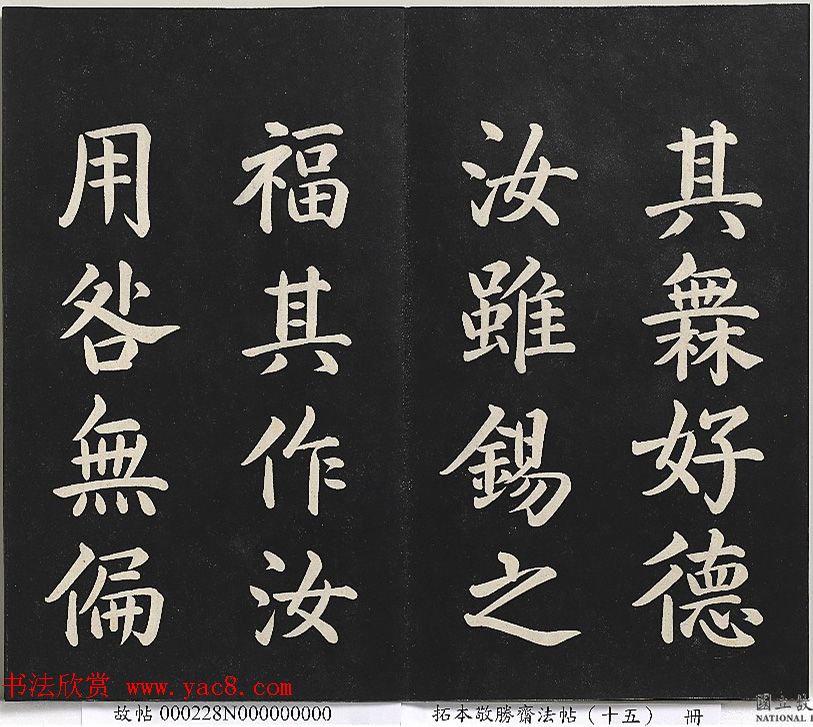 其橆好德
汝雖錫之
福其作汝
用咎無偏
书法欣赏 www.yac8.com
故帖 000228N000000000
拓本敬勝齋法帖（十五） 冊
國立故
NATIONAL